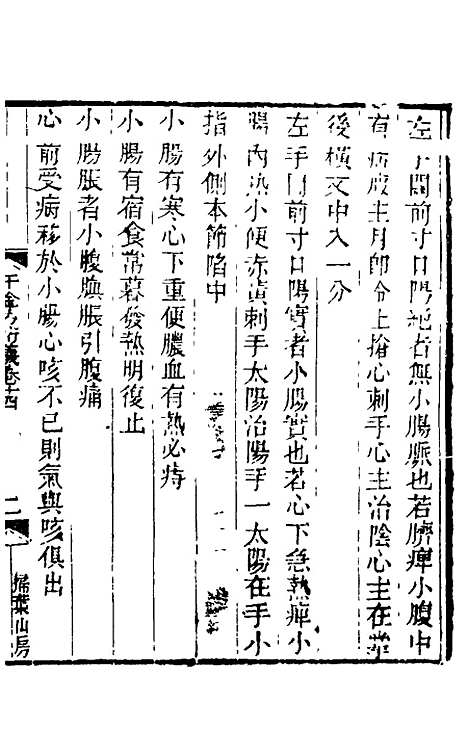 左手關前寸口陽絕者無小腸脈也若臍痺小腹中
有疝瘕主月即冷上搶心刺手心主治陰心主在掌
後橫文中入一分
左手關前寸口陽實者小腸實也若心下急熱痺小
腸內熱小便赤黃刺手太陽治陽手一太陽在手小
指外側本節陷中
小腸有寒心下重便膿血有熱必痔
小腸有宿食常暮發熱明復止
小腸脹者小腹䐜脹引腹痛
心前受病移於小腸心咳不已則氣與咳俱出
千金方衍義卷十四
二
掃葉山房